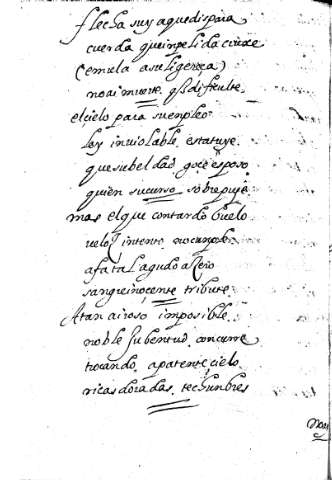 flecha suya quedispara
cuerda queinpelida cruxe
(emula asuligereça)
noai muerte q̃ si dificulte
elcielo para suenpleo
ley inviolable estatuye
quesubeldad goçe esposo
quien sucurso sobrepuje
mas elque contardo buelo
velo intento nocunple
afatal agudo açero
sangreinoçente tribute
Atan airoso imposible
noble Jubentud concurre
trocando aparente çielo
ricas doradas techunbres